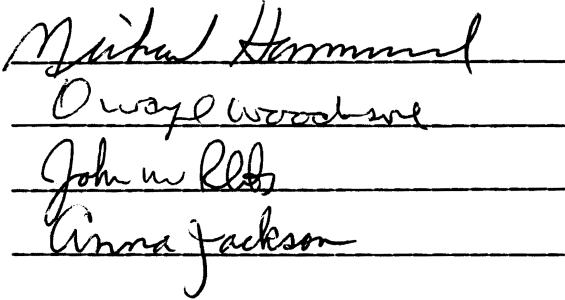 Michael Hammond
Dwayne Woodson
John W
Anna Jackson